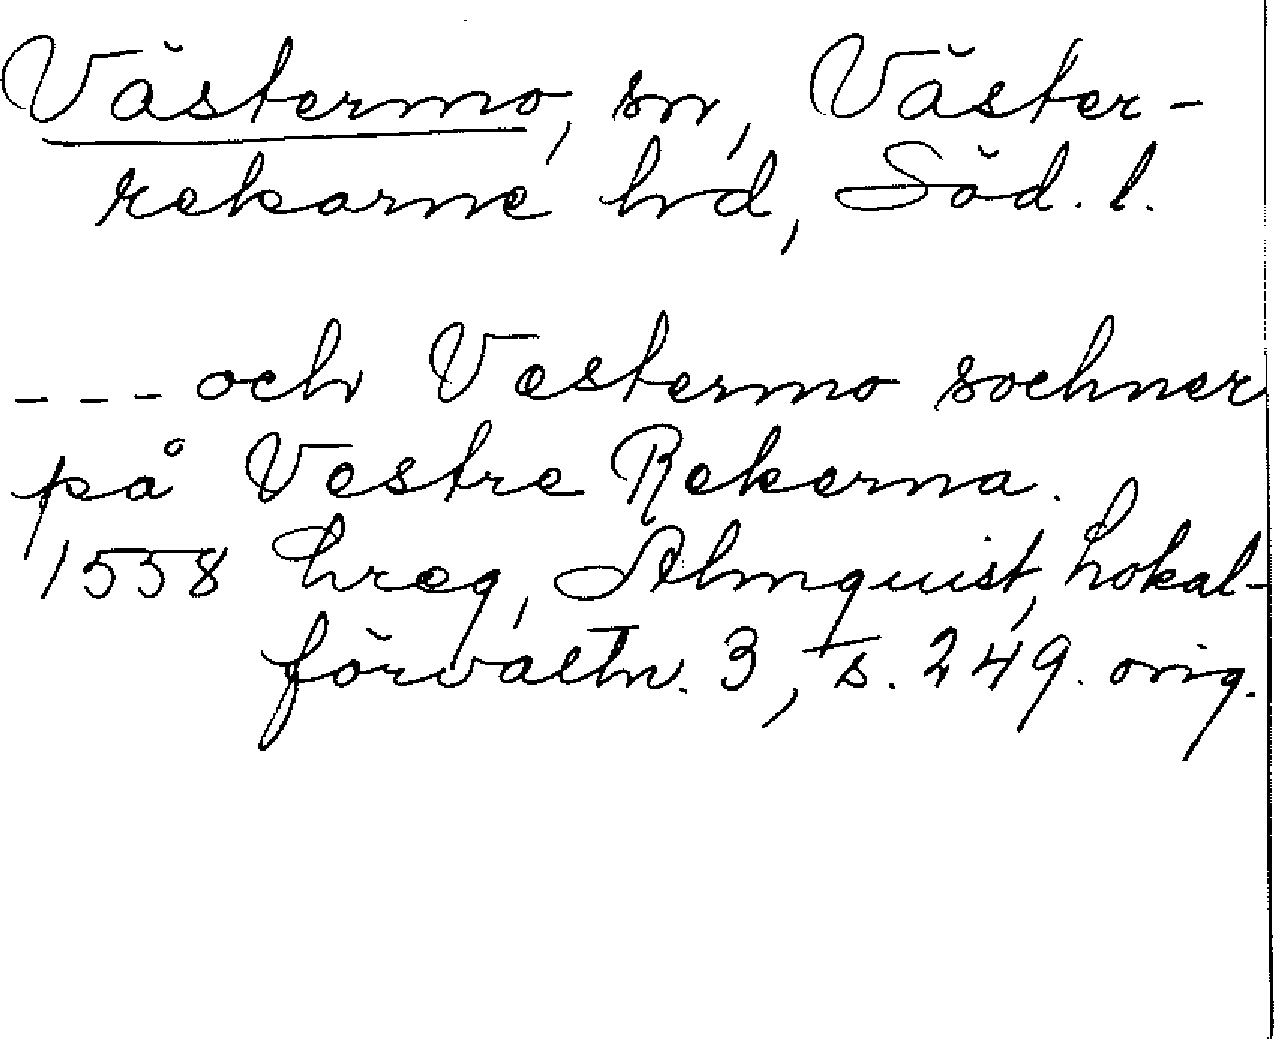 Västermo, sn, Väster-
rekarne hd, Söd. l.
--- och Vestermo sochner
på Vestre Rekerna.
1558 Lreg, Almquist, Lokal-
förvaltn. 3, s. 249. orig.